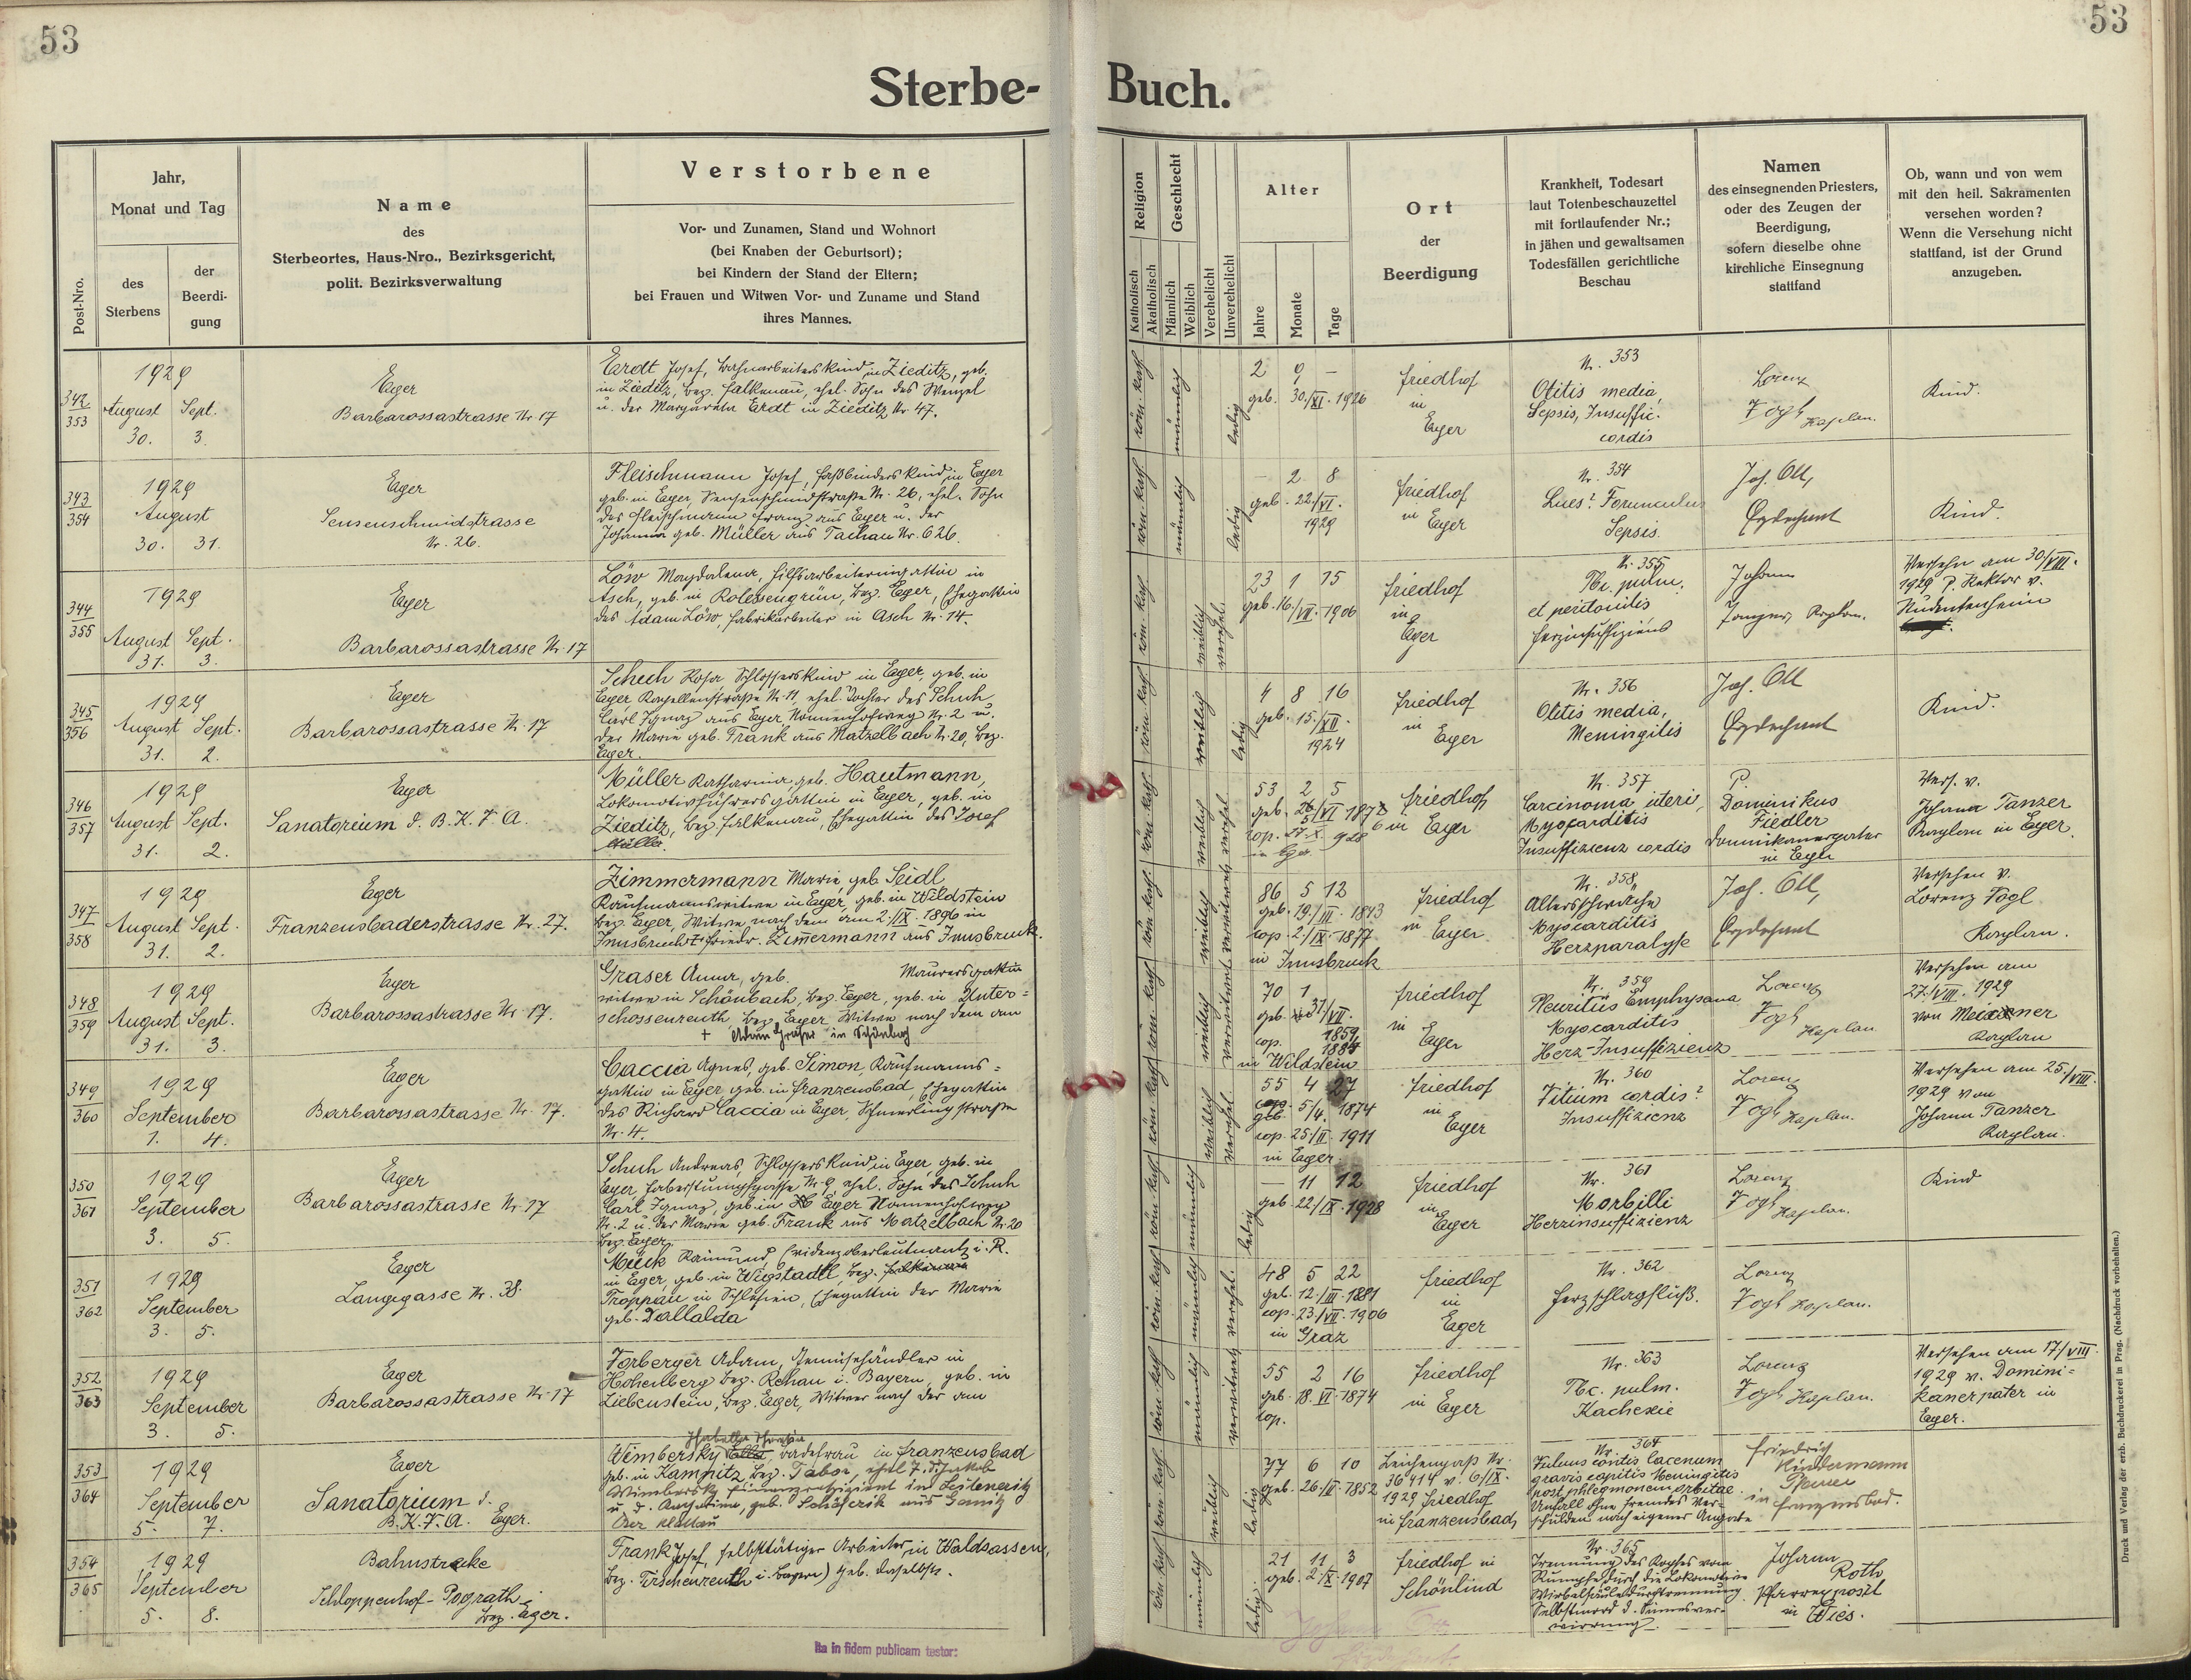 53
53
Sterbe-
Buch.
Post-Nro.
Jahr,
Monat und Tag
des
Sterbens
der
Beerdi-
gung
Name
des
Sterbeortes, Haus-Nro., Bezirksgericht,
polit. Bezirksverwaltung
Verstorbene
Vor- und Zunamen, Stand und Wohnort
(bei Knaben der Geburtsort);
bei Kindern der Stand der Eltern;
bei Frauen und Witwen Vor- und Zuname und Stand
ihres Mannes.
Religion
Katholisch
Akatholisch
Geschlecht
Männlich
Weiblich
Verehelicht
Unverehelicht
Alter
Jahre
Monate
Tage
Ort
der
Beerdigung
Krankheit, Todesart
laut Totenbeschauzettel
mit fortlaufender Nr.;
in jähen und gewaltsamen
Todesfällen gerichtliche
Beschau
Namen
des einsegnenden Priesters,
oder des Zeugen der
Beerdigung,
sofern dieselbe ohne
kirchliche Einsegnung
stattfand
Ob, wann und von wem
mit den heil. Sakramenten
versehen worden?
Wenn die Versehung nicht
stattfand, ist der Grund
anzugeben.
342
353
1929
August Sept.
30. 3.
Eger
Barbarossastrasse Nr. 17
Erdt Josef, Bahnarbeiterskind in Zieditz, geb.
in Zieditz, Bez. Falkenau, ehel. Sohn des Wenzel
u. der Margareta Erdt in Zieditz Nr. 47.
röm. kath.
männlich
ledig
2 9 –
geb. 30./XI. 1926
Friedhof
in
Eger
Nr. 353
Otitis media,
Sepsis, Insuffic.
cordis
Lorenz
Vogl Kaplan.
Kind.
343
354
1929
August
30. 31.
Eger
Sensenschmidstrasse
Nr. 26.
Fleischmann Josef, Faßbinderskind in Eger
geb. in Eger, Sensenschmidstraße Nr. 26, ehel. Sohn
des Fleischmann Franz aus Eger u. der
Johanna geb. Müller aus Tachau Nr. 626.
röm. kath.
männlich
ledig
– 2 8
geb. 22./VI.
1929
Friedhof
in Eger
Nr. 354
Lues? Forunculus
Sepsis.
Joh. Ott,
Erzdechant
Kind.
344
355
1929
August Sept.
31. 3.
Eger
Barbarossastrasse Nr. 17
Löw Magdalena, Hilfsarbeitersgattin in
Asch, geb. in Rossengrün, Bez. Eger, Ehegattin
des Adam Löw, Fabrikarbeiter in Asch Nr. 14.
röm. kath.
weiblich
verehel.
23 1 15
geb. 16./VII. 1906
Friedhof
in
Eger
Nr. 355
Tbc. pulm.
et peritonitis
Herzinsuffiziens
Johann
Kaplan.
Versehen am 30./VIII.
1929 P. Rektor v.
345
356
1929
August Sept.
31. 2.
Eger
Barbarossastrasse Nr. 17
Schuh Rosa Schlosserskind in Eger, geb. in
Eger, Kapellenstraße Nr. 11, ehel. Tochter des Schuh
Carl Ignaz aus Eger, Nonnenhofweg Nr. 2 u.
der Marie geb. Frank aus Matzelbach Nr. 20, Bez.
Eger.
röm. kath.
weiblich
ledig
4 8 16
geb. 15./XII.
1924
Friedhof
in
Eger
Nr. 356
Otitis media,
Meningitis
Joh. Ott
Erzdechant
Kind.
346
357
1929
August Sept.
31. 2.
Eger
Sanatorium d. B.K.V.A.
Müller Katharina, geb. Hautmann,
Lokomotivführersgattin in Eger, geb. in
Zieditz, Bez. Falkenau, Ehegattin des Josef
Müller.
röm. kath.
weiblich
verehel.
53 2 5
geb. 26/VI 1876
in Eger
Friedhof
in Eger
Nr. 357
Carcinoma uteri,
Myocarditis
Insuffizienz cordis
P.
Dominikus
Fiedler
Dominikanerpater
in Eger
Vers. v.
Johann Tanzer
Kaplan in Eger.
347
358
1929
August Sept.
31. 2.
Eger
Franzensbaderstrasse Nr. 27.
Zimmermann Marie, geb. Seidl
Kaufmannswitwe in Eger, geb. in Wildstein
Bez. Eger, Witwe nach dem am 2./IX. 1896 in
Innsbruck † Friedr. Zimmermann aus Innsbruck.
röm. kath.
weiblich
verwitwet
86 5 12
geb. 19./III. 1843
cop. 2./IX. 1877
in Innsbruck
Friedhof
in Eger
Nr. 358
Altersschwäche
Myocarditis
Herzparalyse
Joh. Ott,
Erzdechant
Versehen v.
Lorenz Vogl
Kaplan.
348
359
1929
August Sept.
31. 3.
Eger
Barbarossastrasse Nr. 17.
Graser Anna, geb. Maurersgattin
witwe in Schönbach, Bez. Eger, geb. in Unter-
schossenreuth Bez. Eger Witwe nach dem am
+ Adam Graser in Schönbach
röm. kath.
weiblich
verwitwet
70 1
geb. 31/VII.
1859
cop. 1884
in Wildstein
Friedhof
in
Eger
Nr. 359
Pleuritis Emphysema
Myocarditis
Herz-Insuffizienz
Lorenz
Vogl Kaplan
Versehen am
27./VIII. 1929
von Meixner
Kaplan
349
360
1929
September
1. 4.
Eger
Barbarossastrasse Nr. 17.
Caccia Agnes, geb. Simon, Kaufmanns-
gattin in Eger, geb. in Franzensbad, Ehegattin
des Richard Caccia in Eger, Schmerlingstraße
Nr. 4.
röm. kath.
weiblich
verehel.
55 4 27
geb. 5/4. 1874
cop. 25./II. 1911
in Eger.
Friedhof
in
Eger
Nr. 360
Vitium cordis?
Insuffizienz
Lorenz
Vogl Kaplan.
Versehen am 25./VIII.
1929 von
Johann Tanzer
Kaplan.
350
361
1929
September
3. 5.
Eger
Barbarossastrasse Nr. 17
Schuh Andreas, Schlosserskind in Eger, geb. in
Eger, Nr. 9, ehel. Sohn des Schuh
Carl Ignaz, geb. in Eger Nonnenhofweg
Nr. 2 u. der Marie geb. Frank aus Matzelbach Nr. 20
Bez. Eger.
röm. kath.
männlich
ledig
– 11 12
geb. 22/IX. 1928
Friedhof
in
Eger
Nr. 361
Morbilli
Herzinsuffizienz
Lorenz
Vogl Kaplan.
Kind
351
362
1929
September
3. 5.
Eger
Langegasse Nr. 38.
Mück Raimund, Evidenzoberleutnant i. R.
in Eger, geb. in Wigstadtl, Bez. Falkenau
Troppau in Schlesien, Ehegattin der Marie
geb. Dallalda
röm. kath.
männlich
verehel.
48 5 22
geb. 12./III. 1881
cop. 23./VII. 1906
in Graz
Friedhof
in
Eger
Nr. 362
Herzschlagfluß.
Lorenz
Vogl Kaplan.
352
363
1929
September
3. 5.
Eger
Barbarossastrasse Nr. 17
Forberger Adam, Gemüsehändler in
Hohenberg Bez. Rehau i. Bayern, geb. in
Liebenstein, Bez. Eger, Witwer nach der am
röm. kath.
männlich
verwitwet
55 2 16
geb. 18. VI. 1874
cop.
Friedhof
in Eger
Nr. 363
Tbc. pulm.
Kachexie
Lorenz
Vogl Kaplan.
Versehen am 17/VIII.
1929 v. Domini-
kanerpater in
Eger.
353
364
1929
September
5. 7.
Eger
Sanatorium d.
B.K.V.A. Eger.
Wimbersky Badefrau in Franzensbad
geb. in Kamnitz, Bez. Tabor,
Wimbersky in Leitmeritz
röm. kath.
weiblich
ledig
77 6 10
geb. 26/II. 1852
Leichenpaß Nr.
36414 v. 6/IX.
1929 Friedhof
in Franzensbad
Nr. 364
gravis capitis Meningitis
post phlegmonem orbitae.
Unfall ohne fremdes Ver-
schulden nach eigener Angabe
Friedrich
Kindermann
Pfarrer
in Franzensbad.
354
365
1929
September
5. 8.
Bahnstrecke
Schloppenhof-Pograth
Bez. Eger.
Frank Josef, selbsttätiger Arbeiter in Waldsassen,
Bez. Tirschenreuth i. Bayern) geb. daselbst.
röm. kath.
männlich
ledig.
21 11 3
geb. 2./X. 1907
Friedhof in
Schönlind
Nr. 365
Trennung des Kopfes vom
Rumpfe durch die Lokomotive
Wirbelsäuledurchtrennung
Selbstmord d. Sinnesver-
wirrung.
Johann
Roth
Pfarrexposit
in Wies.
Ita in fidem publicam testor:
Druck und Verlag der erzb. Buchdruckerei in Prag. (Nachdruck vorbehalten.)